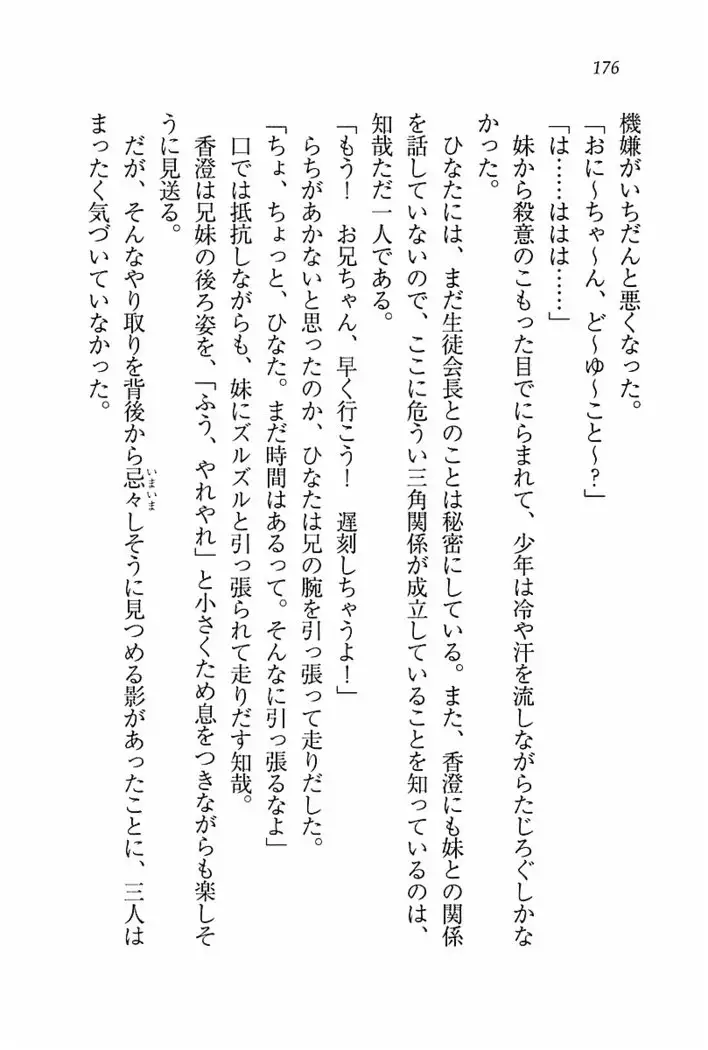 176
機嫌がいちだんと悪くなった。
「おに～ちゃ～ん、ど～ゆ～こと～?」
「は……ははは……」
妹から殺意のこもった目でにらまれて、少年は冷や汗を流しながらたじろぐしかな
かった。
ひなたには、まだ生徒会長とのことは秘密にしている。また、香澄にも妹との関係
を話していないので、ここに危うい三角関係が成立していることを知っているのは、
知哉ただ一人である。
「もう!　お兄ちゃん、早く行こう!　遅刻しちゃうよ!」
らちがあかないと思ったのか、ひなたは兄の腕を引っ張って走りだした。
「ちょ、ちょっと、ひなた。まだ時間はあるって。そんなに引っ張るなよ」
口では抵抗しながらも、妹にズルズルと引っ張られて走りだす知哉。
香澄は兄妹の後ろ姿を、「ふう、やれやれ」と小さくため息をつきながらも楽しそ
うに見送る。
だが、そんなやり取りを背後から忌々しそうに見つめる影があったことに、三人は
いまいま
まったく気づいていなかった。